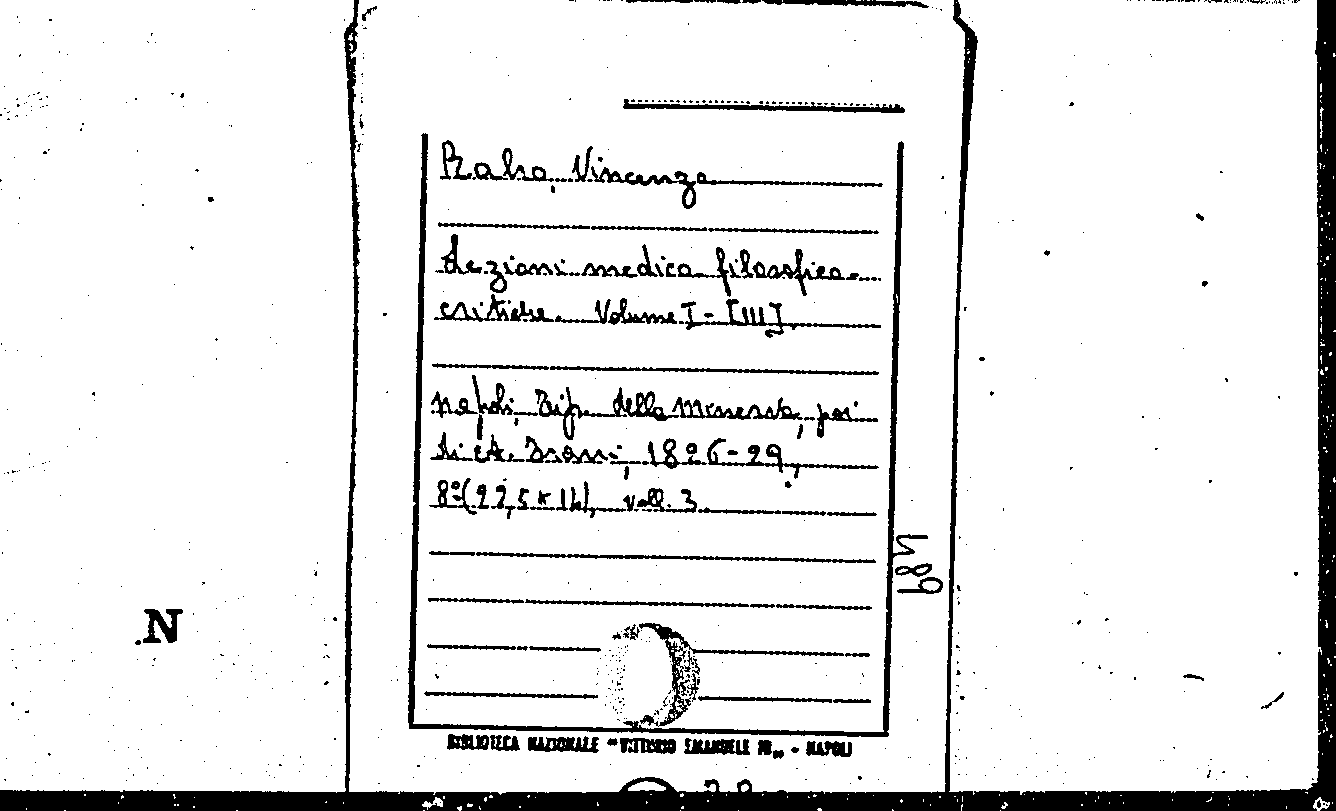 Raho, Vincenzo
Lezioni medico filosofico-
critiche. Volume I-[III].
Napoli, Tip. della Minerva, poi
di A. Trani, 1826-29,
8º(22,5x14), voll. 3.
984
N
BIBLIOTECA NAZIONALE "VITTORIO EMANUELE III„ - NAPOLI